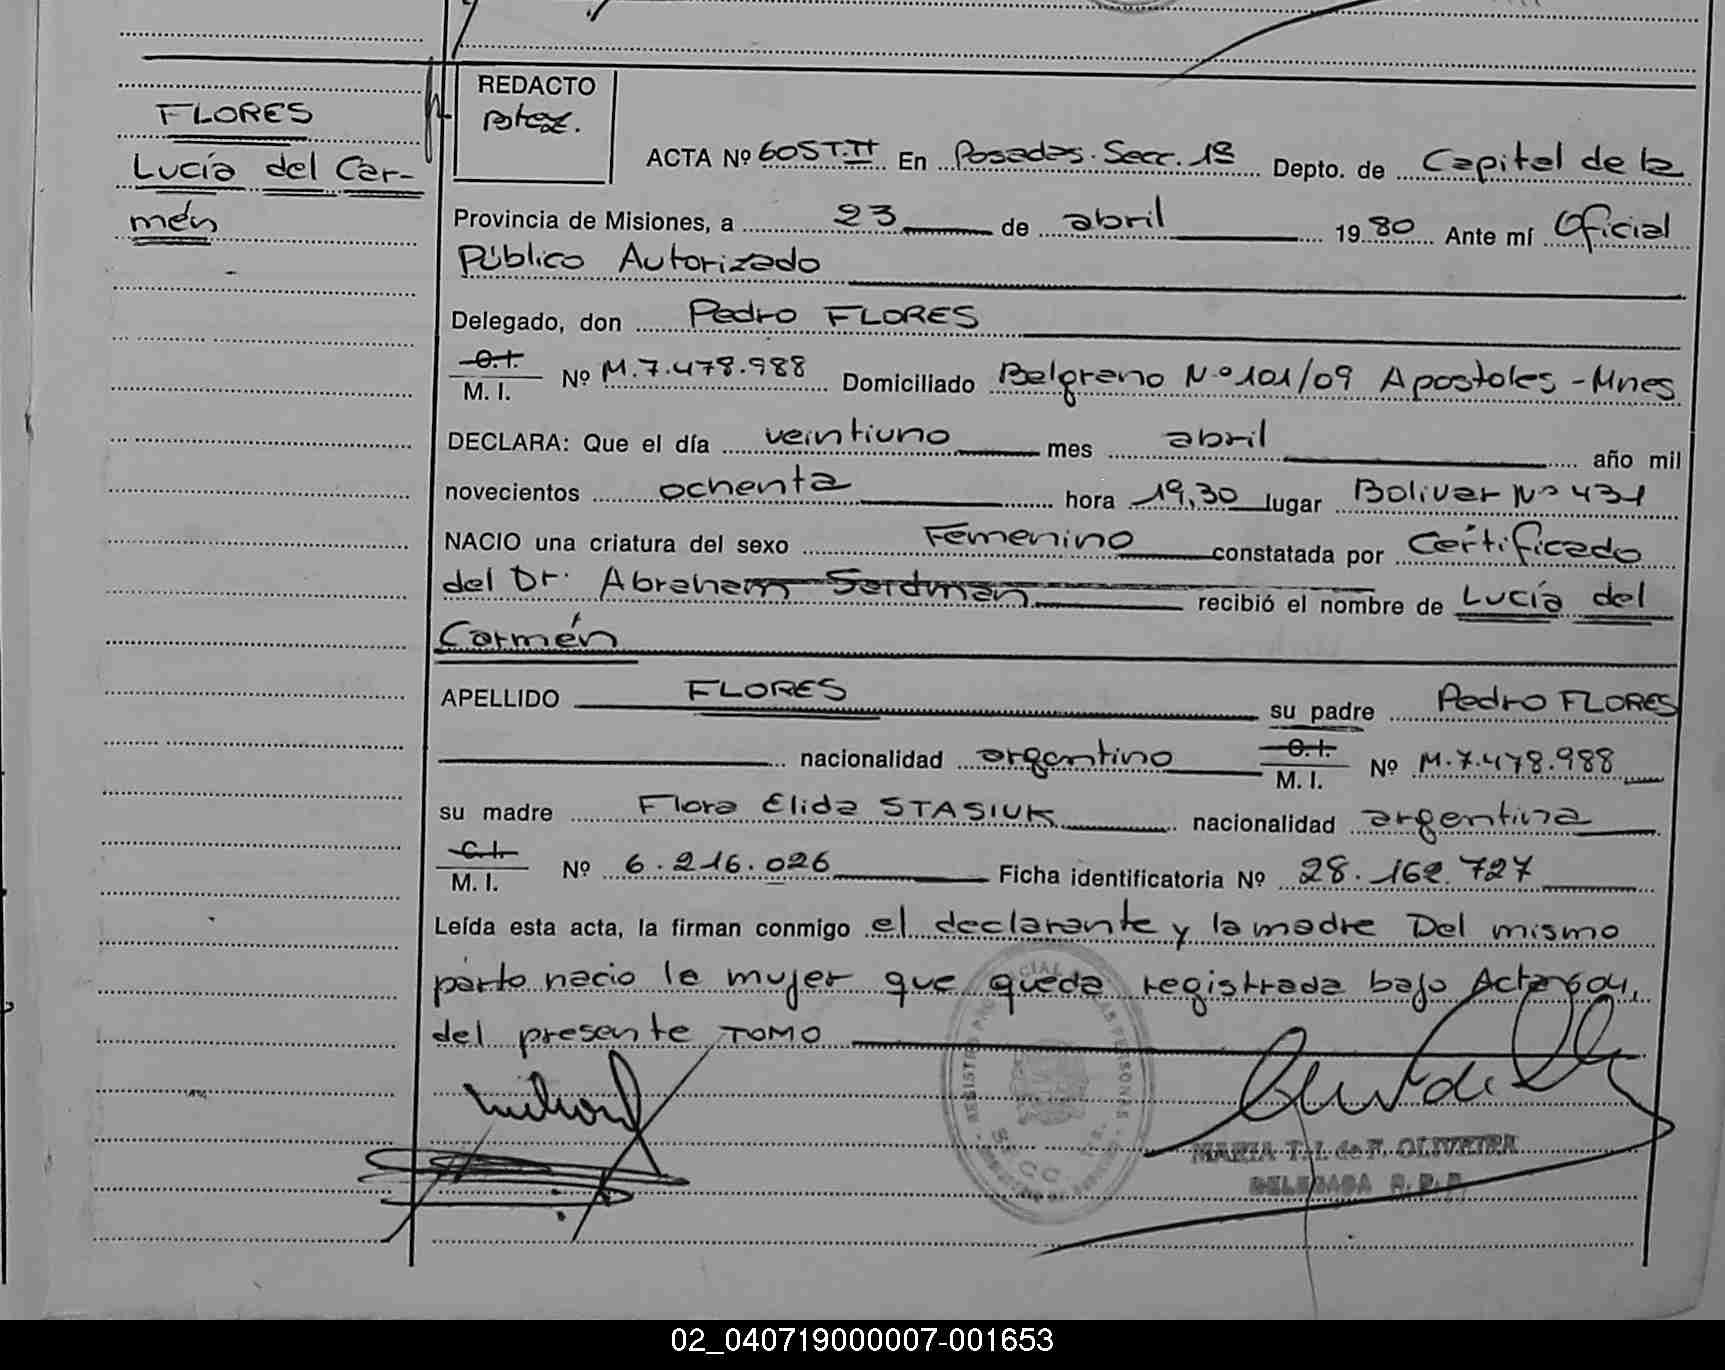 FLORES
Lucía del Car-
mén
REDACTO
ACTA Nº 605 T.II En Posadas. Secc. 1ª Depto. de Capital de la
Provincia de Misiones, a 23 de abril 1980 Ante mí Oficial
Público Autorizado
Delegado, don Pedro FLORES
C.I.
M. I. Nº M.7.478.988 Domiciliado Belgrano Nº 101/09 Apostoles - Mnes
DECLARA: Que el día veintiuno mes abril año mil
novecientos ochenta hora 19,30 lugar Bolivar Nº 431
NACIO una criatura del sexo Femenino constatada por Certificado
del Dr. Abraham Serdman recibió el nombre de Lucía del
Carmén
APELLIDO FLORES su padre Pedro FLORES
nacionalidad argentino C.I.
M. I. Nº M.7.478.988
su madre Flora Elida STASIUK nacionalidad argentina
C.I.
M. I. Nº 6.216.026 Ficha identificatoria Nº 28.162.727
Leída esta acta, la firman conmigo el declarante y la madre Del mismo
parto nacio la mujer que queda registrada bajo Acta 604,
del presente TOMO
MARIA T. I. de F. OLIVEIRA
DELEGADA R.P.P.
02_040719000007-001653